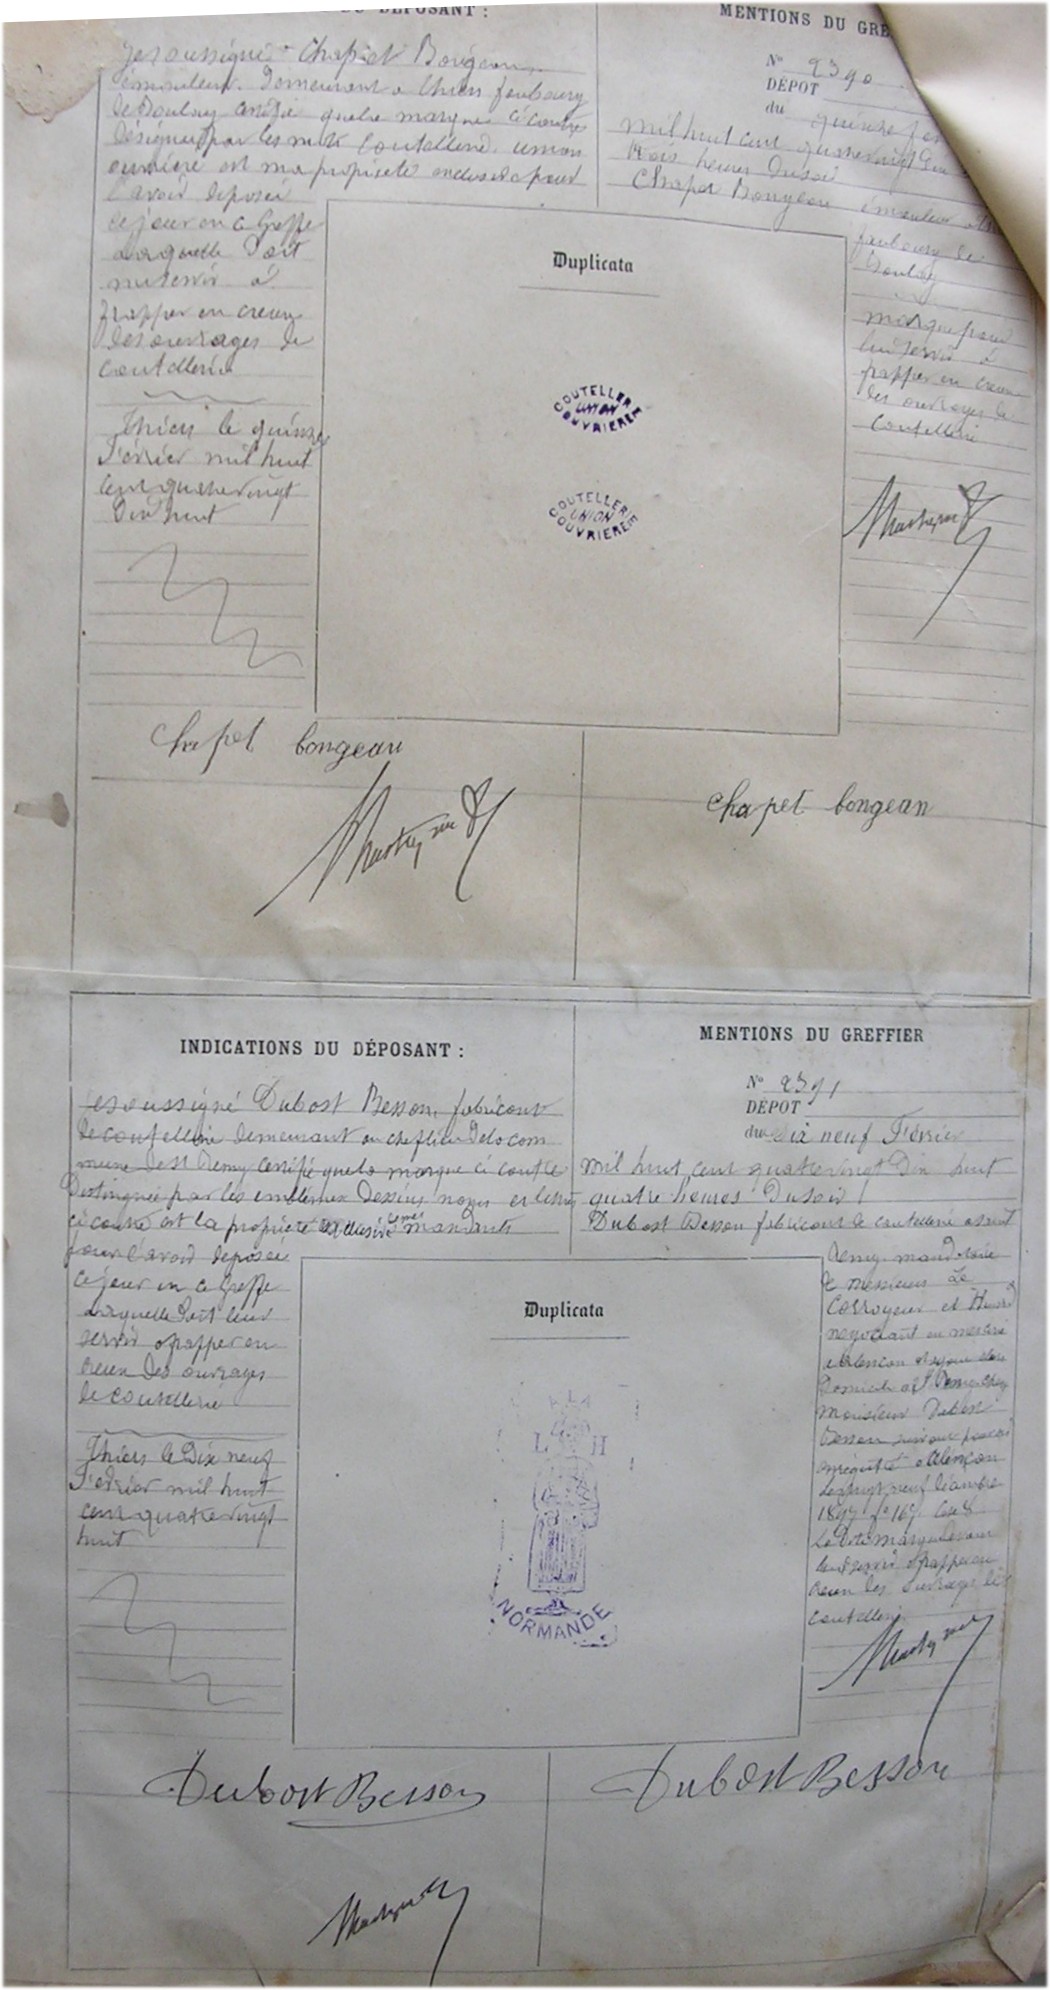 DU DÉPOSANT :
Je soussigné Chapet Bongeau
émouleur. Demeurant a Thiers faubourg
certifie que la marque ci contre
désignée par les mots Coutellerie. union
ouvriere est ma propriété exclusive pour
l'avoir deposée
ce jour en ce Greffe
laquelle Doit
me servir à
frapper en creux
des ouvrages de
coutellerie
Thiers le quinze
Février mil huit
cent quatrevingt
Dix huit
chapet bongeau
MENTIONS DU GRE
N° 2390
DÉPOT
du quinze
mil huit cent quatrevingt
trois heures Du soir
Chapet Bongeau émouleur
faubourg de
marque pour
lui servir à
frapper en creux
des ouvrages de
coutellerie
Duplicata
COUTELLERIE
UNION
OUVRIERE
COUTELLERIE
UNION
OUVRIERE
chapet bongean
INDICATIONS DU DÉPOSANT :
Je soussigné Dubost Besson, fabricant
de coutellerie demeurant au chef lieu de la com
mune de St Remy certifie que la marque ci contre
Distinguée par les emblèmes Dessins noms et lettres
ci contre est la propriété exclusive de mes mandants
pour l'avoir deposée
ce jour en ce Greffe
Laquelle Doit leur
servir a frapper en
creux des ouvrages
de coutellerie
Thiers le Dix neuf
Février mil huit
cent quatrevingt
huit
MENTIONS DU GREFFIER
N° 2391
DÉPOT
du dix neuf Février
mil huit cent quatrevingt Dix huit
quatre heures Du soir
Dubost Besson fabricant de coutellerie a saint
Remy mandataire
de messieurs Le
Corroyeur et
negociant en
a Alencon
Domicile a St Remy chez
Monsieur Dubost
Besson
enregistré a Alençon
1897
La Dite marque
leur servir a frapper en
creux les ouvrages de
coutellerie
Duplicata
L H
NORMANDE
Dubost Besson
Dubost Besson